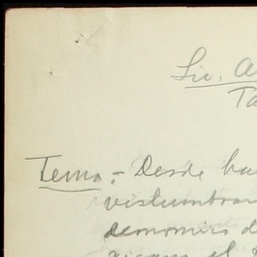 Lic. A
Ta
Tema.- Desde ha
vislumbra
economico d
el